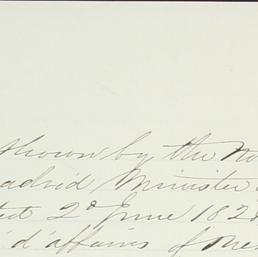 shown by the No
adrid Minister
ted 2d June 182
d'affairs of Me